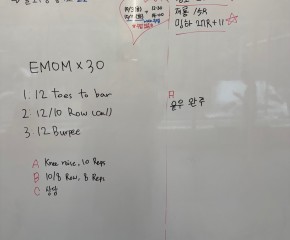 EMOM x 30
1. 12 toes to bar
2. 12/10 Row (cal)
3. 12 Burpee
A Knee raise, 10 Reps
B 10/8 Row, 8 Reps
C 상담
15R
27R + 11 ☆
A
완주